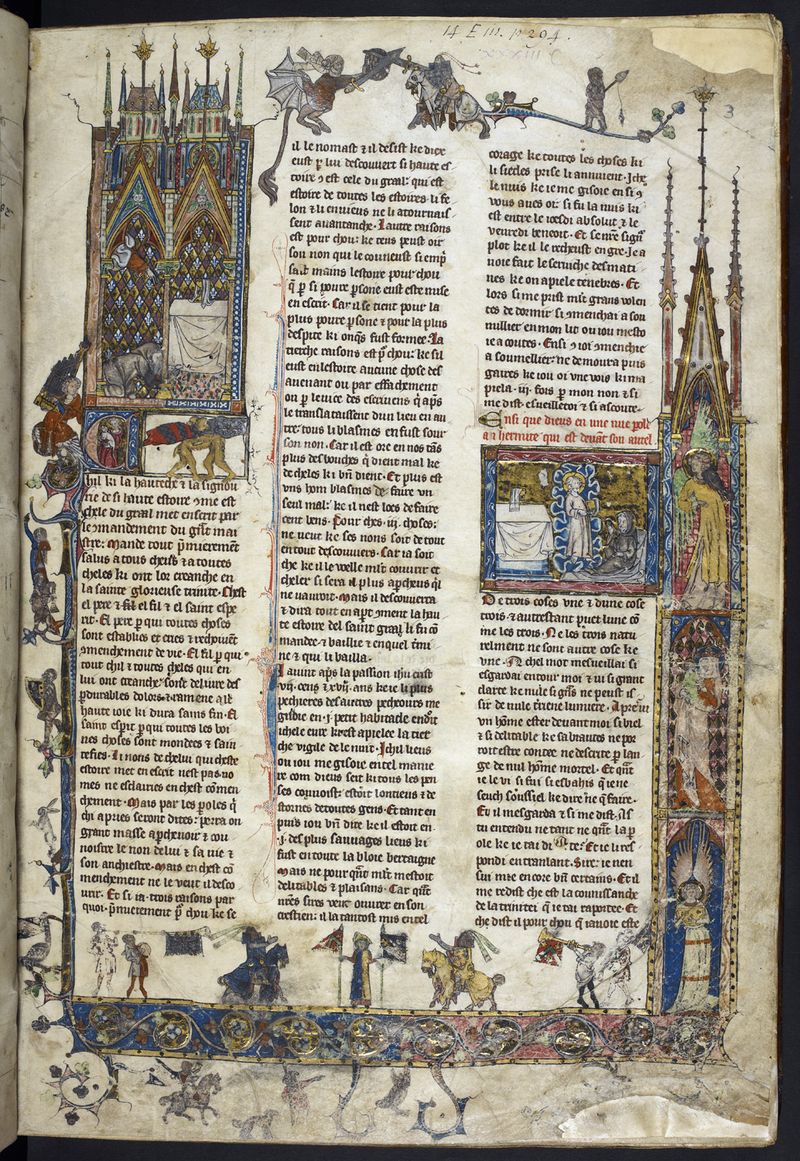 14 E III. n 204.
3
Chil ki la hauteche & la signou
rie de si haute estoire 9me est
chele du graal met en escrit par
le 9mandement du gñt mai
stre: Mande tout p̃mierem̃t
salus a tous cheus & a toutes
cheles ki ont lor creanche en
la sainte glorieuse trinite. Chest
el pere & el fil & el saint espe
rit. El pere p̱ qui toutes choses
sont establies et
9menchement de vie. El fil p̱ qui
tout chil & toutes cheles qui en
lui ont creanche sont deliure des
p̱durables dolors & ramene a le
haute ioie ki dura sans fin. El
saint esp̃it p̱ qui toutes les boi
nes choses sont mondees & sain
tefies. Li nons de chelui qui cheste
estoire met en escrit nest pas no
mes ne esclairies en chest 9men
chement. Mais par les ꝑoles q̃
chi apries seront dites: porra on
grant masse ap̱cheuoir & cou
noistre le non de lui & sa uie &
son anchiestre. Mais en chest cō
menchement ne le veut il desco
urir. Et si ia trois raisons par
quoi. p̃mierement p̱ chou ke se
il le nomast & il desist ke dieu
eust p̱ lui descouuert si haute es
toire 9 est cele du graal: qui est
estoire de toutes les estoires. li fe
lon & li enuieus ne li atournais
sent auantanche. Lautre raisons
est pour chou: ke teus peust oir
son non qui le couneust si emp̃
sast mains lestoire pour chou
q̃ p̱ si poure p̱sone eust este mise
en escrit. Car il se tient pour la
plus poure p̱sone & pour la plus
despite ki onq̃s fust formee. La
tierche raisons est p̱ chou: ke sil
eust en lestoire aucune chose des
auenant ou par effachement
ou p̱ le uice des escriuens q̃ ap̃s
le translataissent dun lieu en au
tre: tous li blasmes en fust sour
son non. Car il est ore en nos tãs
plus des bouches q̃ dient mal ke
de cheles ki bñ dient. Et plus est
vns hom blasmes de faire vn
seul mal: ke il nest loes de faire
cent bens. Pour ches .iij. choses:
ne ueut ke ses nons soit de tout
en tout descouuers. Car ia soit
che ke il le voelle mlt couurir et
cheler si sera il plus ap̱cheus q̃l
ne uauroit. Mais il descouuerra
& dira tout en ap̱t 9ment la hau
te estoire del saint graal li fu cō
mandee & baillie & en quel tãmi
ne & qui li bailla.
Il auint ap̃s la passion ihu crist
.vij. cens & .xvij. ans ke ie li plus
pechieres des autres pecheours me
gisoie en .j. petit habitacle endr̃t
ichele eure ki est apielee la tier
che vigile de le nuit. Ichil lieus
ou iou me gisoie en tel manie
re com dieus seit ki tous les pen
ses connoist: estoit lontiens & de
stornes de toutes gens. Et tant en
puis iou bñ dire ke il estoit en
.j. des plus sauuages lieus ki
fust en toute la bloie bertaigne
Mais ne pour qũt mlt mestoit
delitables & plaisans. Car quãt
nr̃es sires veut ouurer en son
crestien: il la tantost mis en tel
corage ke toutes les choses ki
li siecles prise li anuuient.
le nuis ke ie me gisoie en si 9
vous aues oi: si fu la nuis ki
est entre le ioesdi absolut & le
venredi beneoit. Et se nr̃e sigñ
plot ke il le recheust en gre. Ie a
uoie fait le seruiche des mati
nes ke on apiele tenebres. Et
lors si me prist mlt grans volen
tes de dormir si 9menchai a som
millier en mon lit ou iou mesto
ie acoutes. Ensi 9 ioi 9menchie
a soumellier: ne demoura puis
gaires ke iou oi vne vois ki ma
piela .iij. fois p̱ mon non & si
me dist. esueille toi & si ascoute.
Ensi que dieus en une nue parl
a .j. hermite qui est deuāt son autel
De trois coses vne & dune cose
trois. & autrestant puet lune cō
me les trois. Ne les trois natu
relment ne sont autre cose ke
vne. A chel mot mesueillai si
esgardai entour moi & ui si grant
clarte ke nule si grãs ne peust is
sir de nule terienne lumiere. Ap̃s ui
vn hōme ester deuant moi si biel
& si delitable ke sa biautes ne por
roit estre contee ne descrite p̱ lan
ge de nul hōme mortel. Et qũt
ie le vi si fui si esbahis q̃ ie ne
seuch souffiel ke dire ne q̃ faire.
Et il mesgarda & si me dist. As
tu entendu ne tant ne qũt la p̱
ole ke ie tai dite. Et ie li res
pondi en tranlant. Sire: ie nen
sui mie encore bñ certains. Et il
me redist che est la counissanche
de la trinitei q̃ ie tai raportee. Et
che dist il pour chou q̃ iauoie este